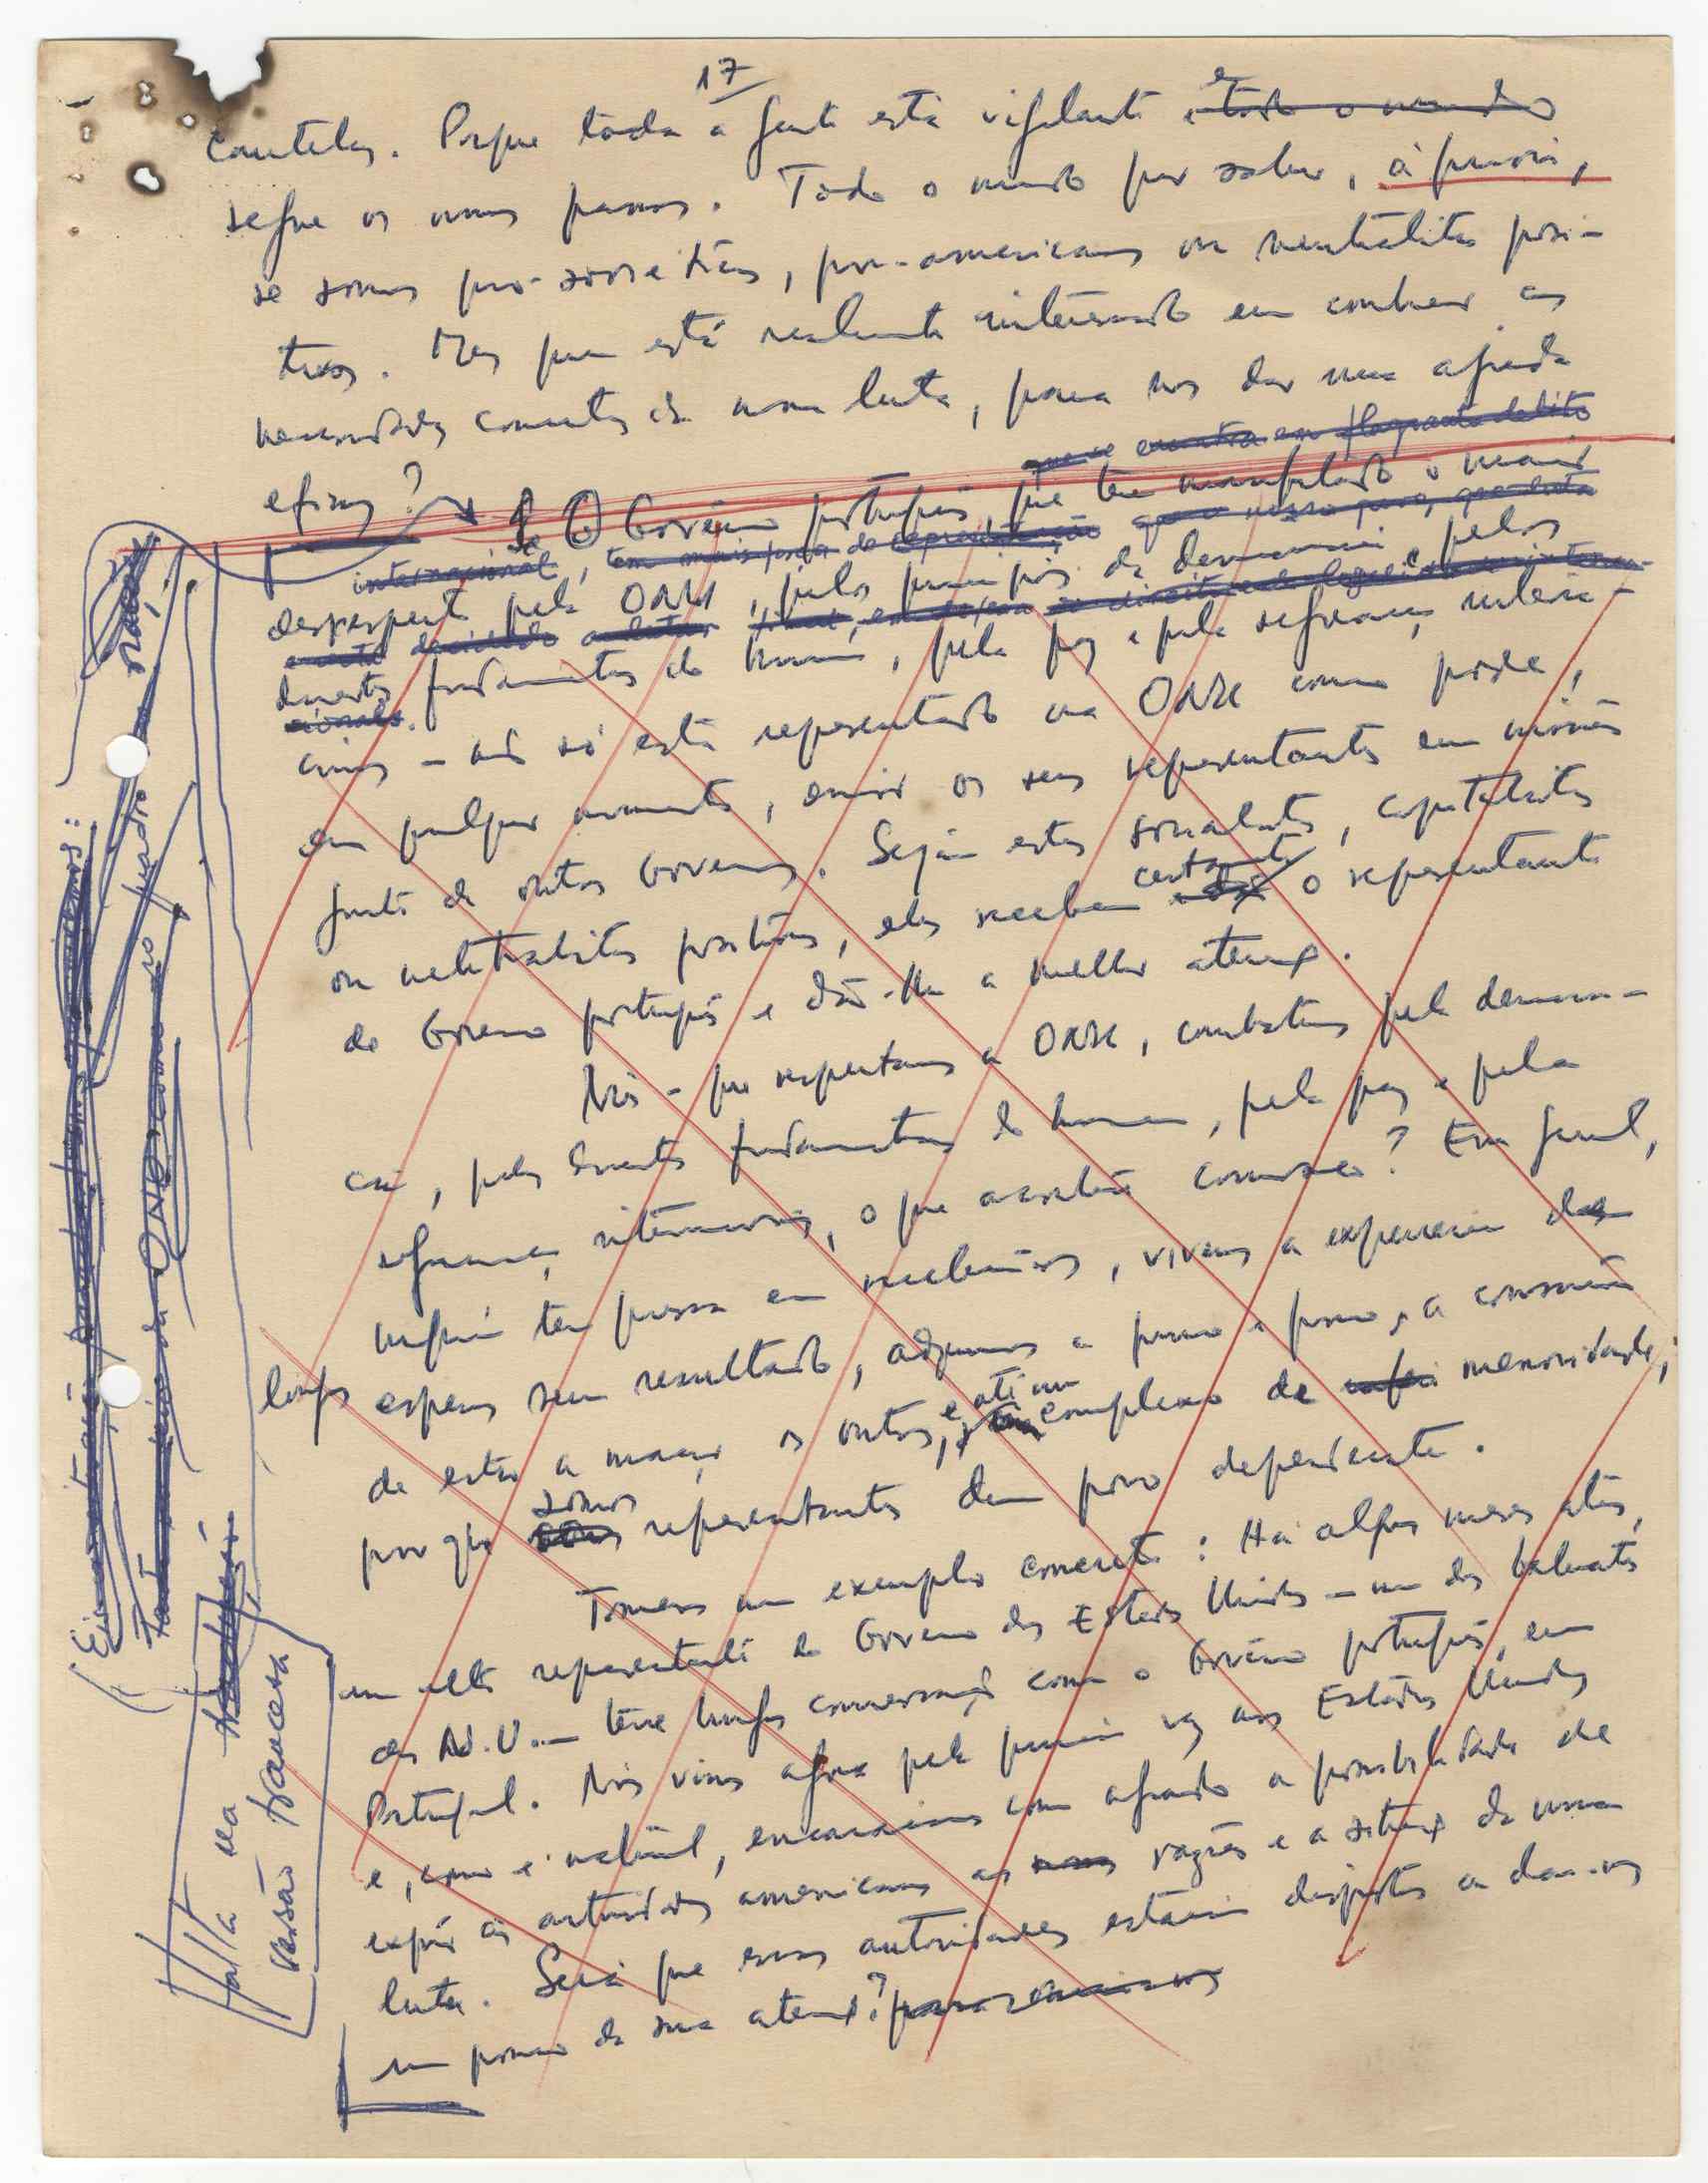 17
cautelas. Porque toda a gente está vigilante e todo o mundo
segue os nossos passos. Todo o mundo quer saber, à priori,
se somos pró-soviéticos, pro-americanos ou neutralistas posi-
tivos. Mas quem está realmente interessado em conhecer as
necessidades concretas da nossa luta, para nos dar uma ajuda
que se encontra em flagrante delito
eficaz? O Govêrno português, que tem manifestado o maior
internacional, tem mais força de representação que o nosso povo, que luta
desrespeito pela ONU, pelos princípios da democracia e pelos
e está decidido a lutar
direitos fundamentais do homem, pela paz e pela segurança interna-
cionais.
cionais – não só está representado na ONU como pode,
em qualquer momento, enviar os seus representantes em missão
junto de outros Governos. Sejam estes socialistas, capitalistas
ou neutralistas positivos, eles recebem certamente o representante
do Governo português e dão-lhe a melhor atenção.
Nós – que respeitamos a ONU, combatemos pela democra-
cia, pelos direitos fundamentais do homem, pela paz e pela
segurança internacionais, o que acontece connosco? Em geral,
ninguém tem pressa em receber-nos, vivemos a experiência das
longas esperas sem resultado, adquirimos a pouco e pouco, a consciência
de estar a maçar os outros, e até um complexo de menoridade,
porque somos representantes dum povo dependente.
Tomemos um exemplo concreto: Há alguns meses atrás,
um alto representante do Governo dos Estados Unidos – um dos baluartes
das N.U. – teve longas conversações com o Govêrno português, em
Portugal. Nós vimos agora pela primeira vez aos Estados Unidos
e, como é natural, encaramos com agrado a possibilidade de
expôr às autoridades americanas as razões e a situação da nossa
luta. Será que essas autoridades estarão dispostas a dar-nos
um pouco da sua atenção?
Tanto no seio da ONU como no quadro das nações
Falta na tradução
versão francesa